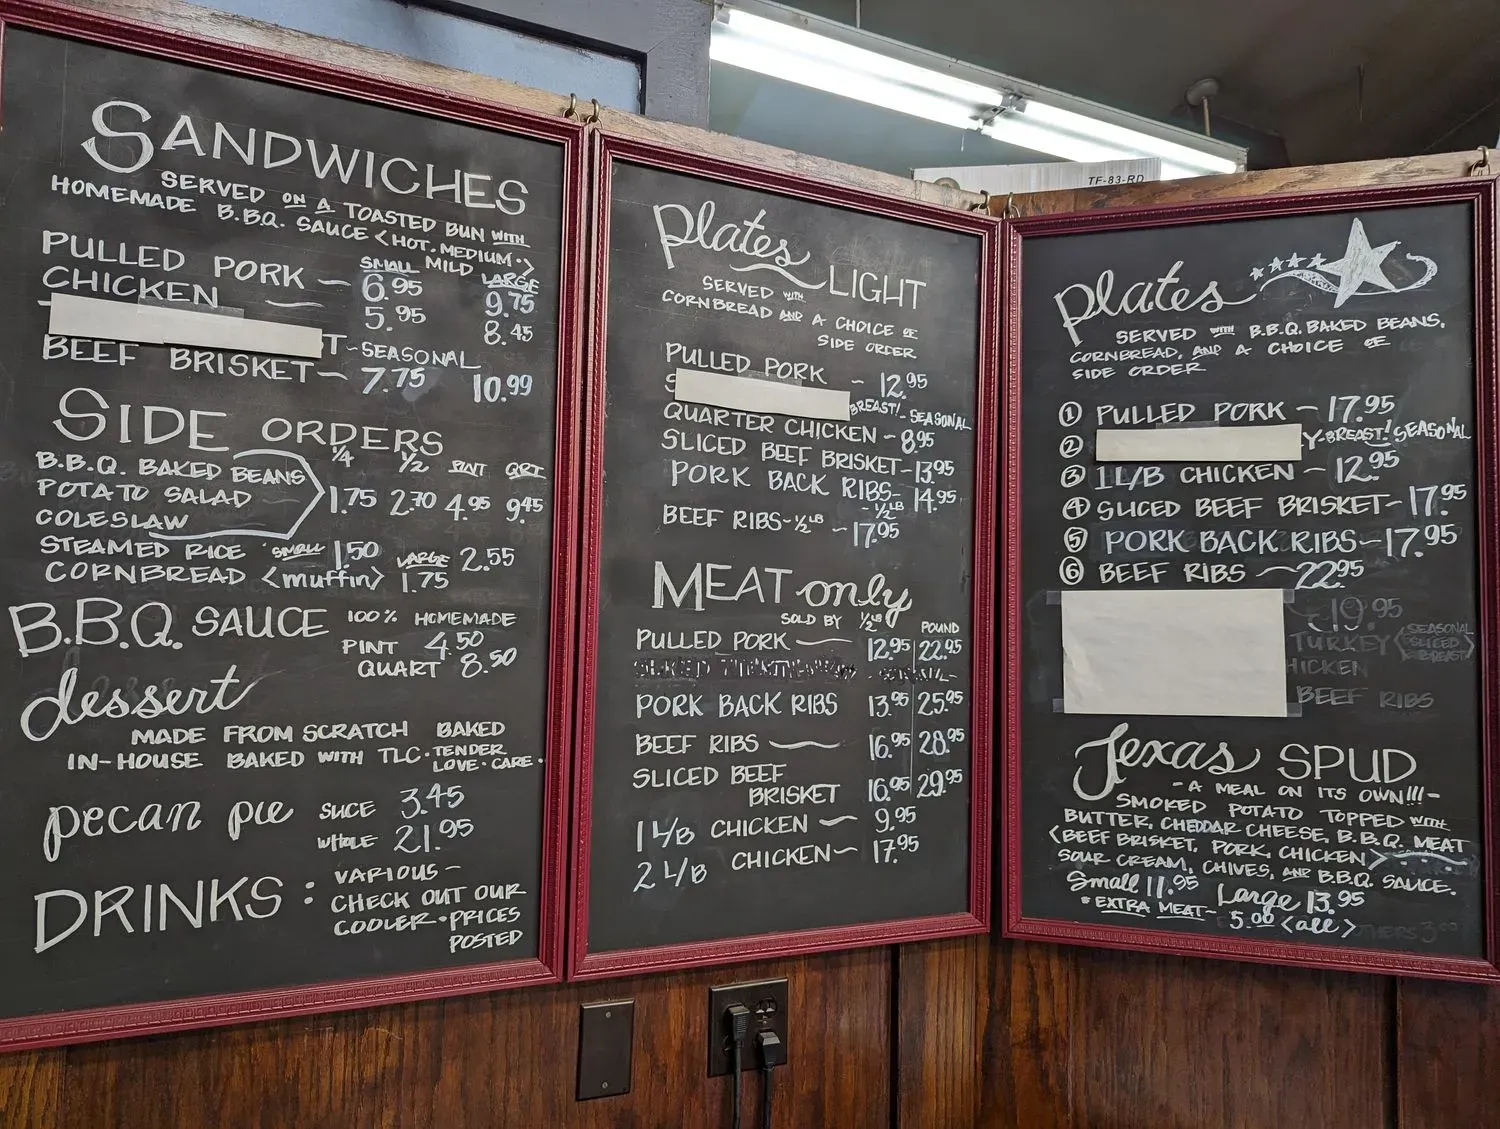 SANDWICHES
SERVED ON A TOASTED BUN WITH
HOMEMADE B.B.Q. SAUCE <HOT, MEDIUM, MILD>
SMALL LARGE
PULLED PORK — 6.95 9.75
CHICKEN — 5.95 8.45
T-SEASONAL
BEEF BRISKET — 7.75 10.99
SIDE ORDERS
1/4 1/2 PINT QRT
B.B.Q. BAKED BEANS
POTATO SALAD 1.75 2.70 4.95 9.45
COLESLAW
STEAMED RICE SMALL 1.50 LARGE 2.55
CORNBREAD <muffin> 1.75
B.B.Q. SAUCE 100% HOMEMADE
PINT 4.50
QUART 8.50
dessert
MADE FROM SCRATCH BAKED
IN-HOUSE BAKED WITH TLC · TENDER LOVE · CARE ·
pecan pie SLICE 3.45
WHOLE 21.95
DRINKS : VARIOUS —
CHECK OUT OUR
COOLER · PRICES
POSTED
plates LIGHT
SERVED WITH
CORNBREAD AND A CHOICE OF
SIDE ORDER
PULLED PORK — 12.95
S BREAST! - SEASONAL
QUARTER CHICKEN — 8.95
SLICED BEEF BRISKET — 13.95
PORK BACK RIBS — 1/2 LB 14.95
BEEF RIBS - 1/2 LB — 17.95
MEAT only
SOLD BY 1/2 LB POUND
PULLED PORK — 12.95 22.95
PORK BACK RIBS 13.95 25.95
BEEF RIBS — 16.95 28.95
SLICED BEEF
BRISKET 16.95 29.95
1 L/B CHICKEN — 9.95
2 L/B CHICKEN — 17.95
TF-83-RD
plates
SERVED WITH B.B.Q. BAKED BEANS,
CORNBREAD, AND A CHOICE OF
SIDE ORDER
① PULLED PORK — 17.95
② Y-BREAST! SEASONAL
③ 1 L/B CHICKEN — 12.95
④ SLICED BEEF BRISKET — 17.95
⑤ PORK BACK RIBS — 17.95
⑥ BEEF RIBS — 22.95
— 19.95
TURKEY <SEASONAL SLICED BREAST>
HICKEN
BEEF RIBS
Texas SPUD
- A MEAL ON ITS OWN!!! -
SMOKED POTATO TOPPED WITH
BUTTER, CHEDDAR CHEESE, B.B.Q. MEAT
<BEEF BRISKET, PORK, CHICKEN>
SOUR CREAM, CHIVES, AND B.B.Q. SAUCE.
Small 11.95 Large 13.95
* EXTRA MEAT — 5.00 <all> OTHERS 3.00